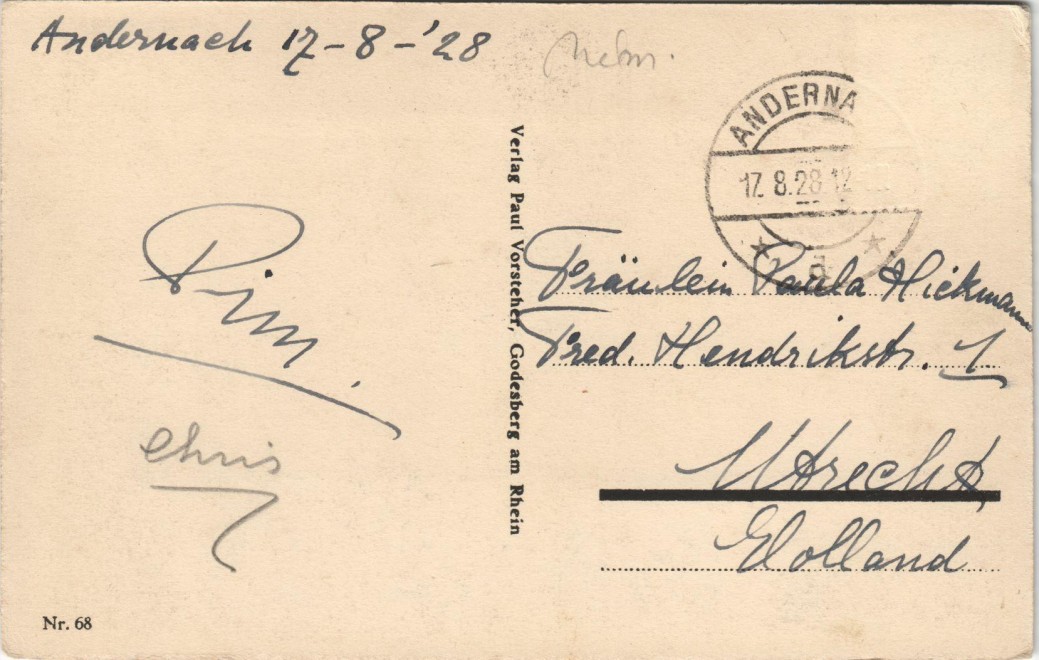 Andernach 17-8-'28
ANDERNA
17. 8.28.12
* d *
Pim.
chris
Verlag Paul Vorsteher, Godesberg am Rhein
Fräulein Paula Hickmann
Fred. Hendrikstr. 1.
Utrecht,
Holland
Nr. 68